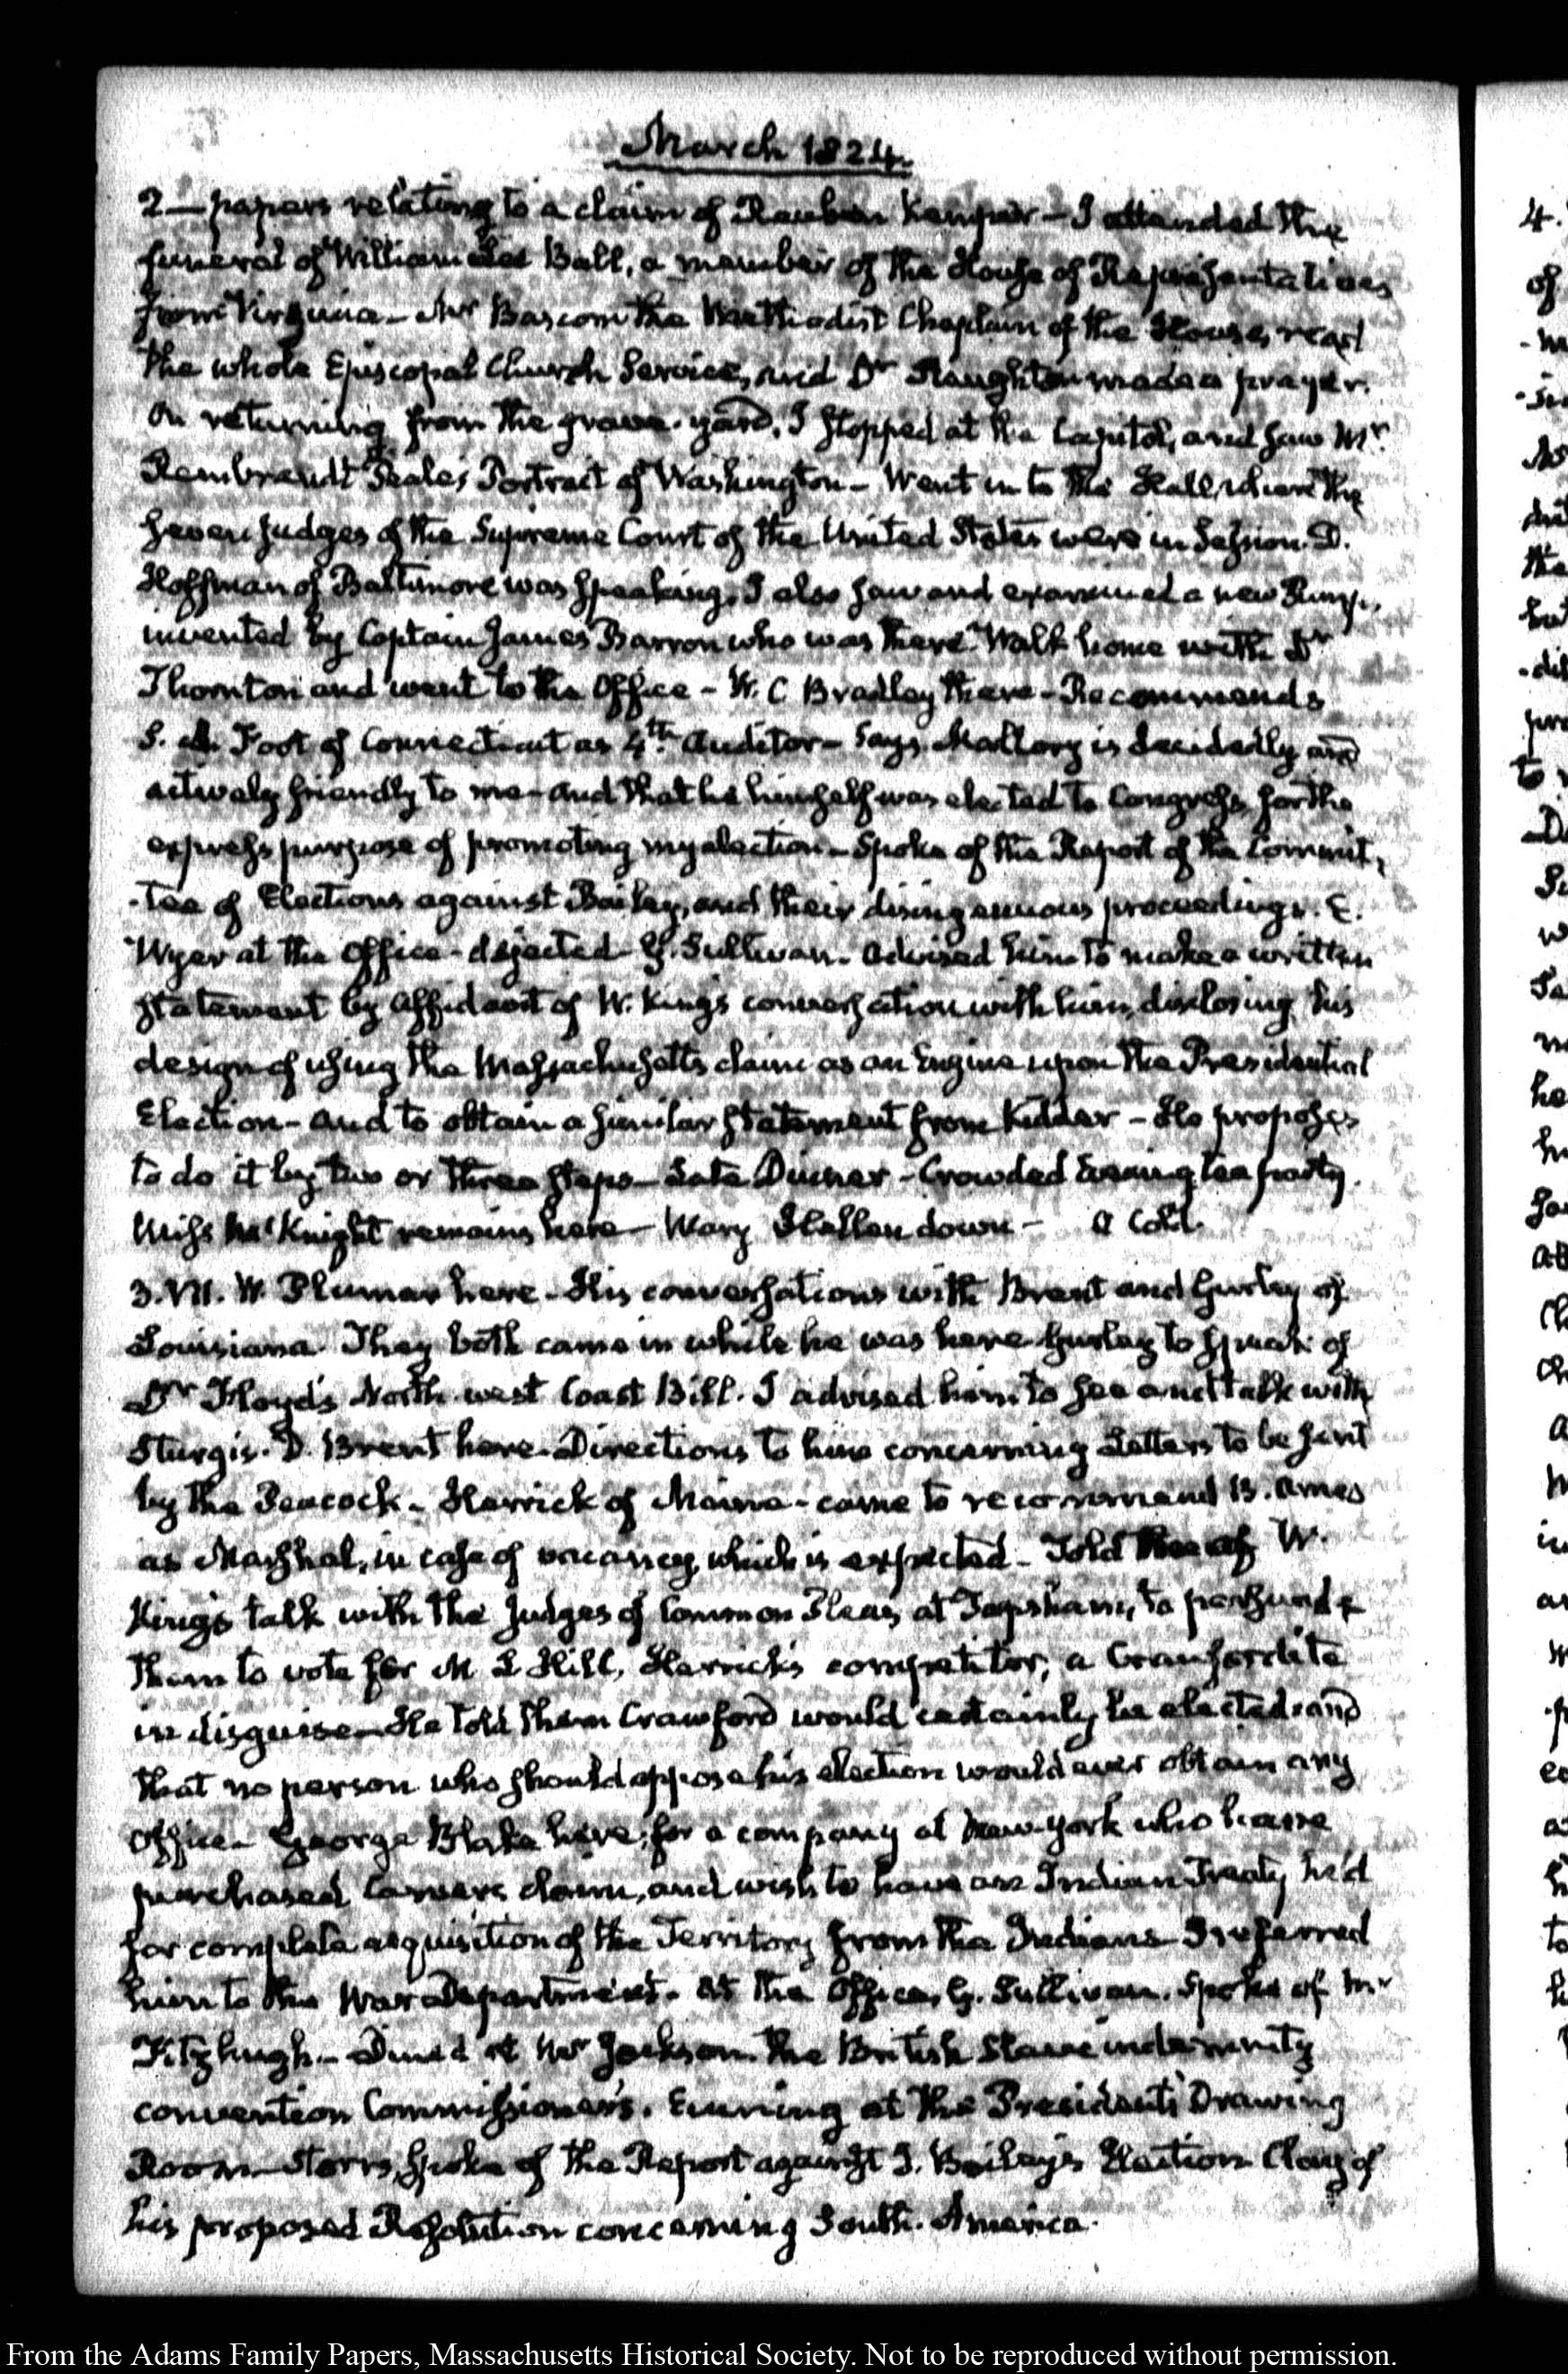 March 1824.
2— papers relating to a claim of Reuben Kemper — I attended the
funeral of William Lee Ball, a member of the House of Representatives
from Virginia — Mr Bascom the Methodist Chaplain of the House, read
the whole Episcopal Church Service, and Dr Staughton made a prayer.
On returning from the grave-yard, I stopped at the Capitol, and saw Mr
Rembrandt Peale's Portrait of Washington — Went in to the Hall where the
seven judges of the Supreme Court of the United States were in Session. D.
Hoffman of Baltimore was speaking. I also saw and examined a new Pump,
invented by Captain James Barron who was there. Walk home with Dr
Thornton and went to the Office — W. C Bradley there — Recommends
S. A. Foot of Connecticut as 4th Auditor — Says Mallory is decidedly and
actively friendly to me — and that he himself was elected to Congress for the
express purpose of promoting my election — Spoke of the Report of the Commit,
-tee of Elections against Bailey, and their disingenuous proceedings. E.
Wyer at the Office — dejected — G. Sullivan. Advised him to make a written
statement by affidavit of W. King's conversation with him, disclosing his
design of using the Massachusetts claim as an Engine upon the Presidential
Election — and to obtain a similar statement from Kidder — He proposes
to do it by two or three steps — Late Dinner — Crowded Evening tea party.
Miss McKnight remains here — Mary Hellen down — a Cold.
3. VII. W. Plumer here — His conversations with Brent and Gurley of
Louisiana. They both came in while he was here Gurley to speak of
Dr Floyd's North-west Coast Bill. I advised him to see and talk with
Sturgis. D. Brent here — Directions to him concerning Letters to be sent
by the Peacock — Herrick of Maine — came to recommend B. Ames
as Marshal, in case of vacancy, which is expected — Told me of W.
King's talk with the Judges of Common Pleas, at Topsham, to persuade
them to vote for M L Hill, Herrick's competitor, a Crawfordite
in disguise — He told them Crawford would certainly be elected and
that no person who should oppose his election would ever obtain any
Office — George Blake here, for a company at New-York who have
purchased Carver's claim, and wish to have an Indian Treaty held
for complete acquisition of the Territory from the Indians — I referred
him to the War Department. At the Office, G. Sullivan. Spoke of Mr
Fitzhugh — Dined at Mr Jackson the British Slave indemnity
convention Commissioner's. Evening at the President's Drawing
Room — Storrs, spoke of the Report against J. Bailey's Election Clay of
his proposed Resolution concerning South-America.
4.
of
From the Adams Family Papers, Massachusetts Historical Society. Not to be reproduced without permission.